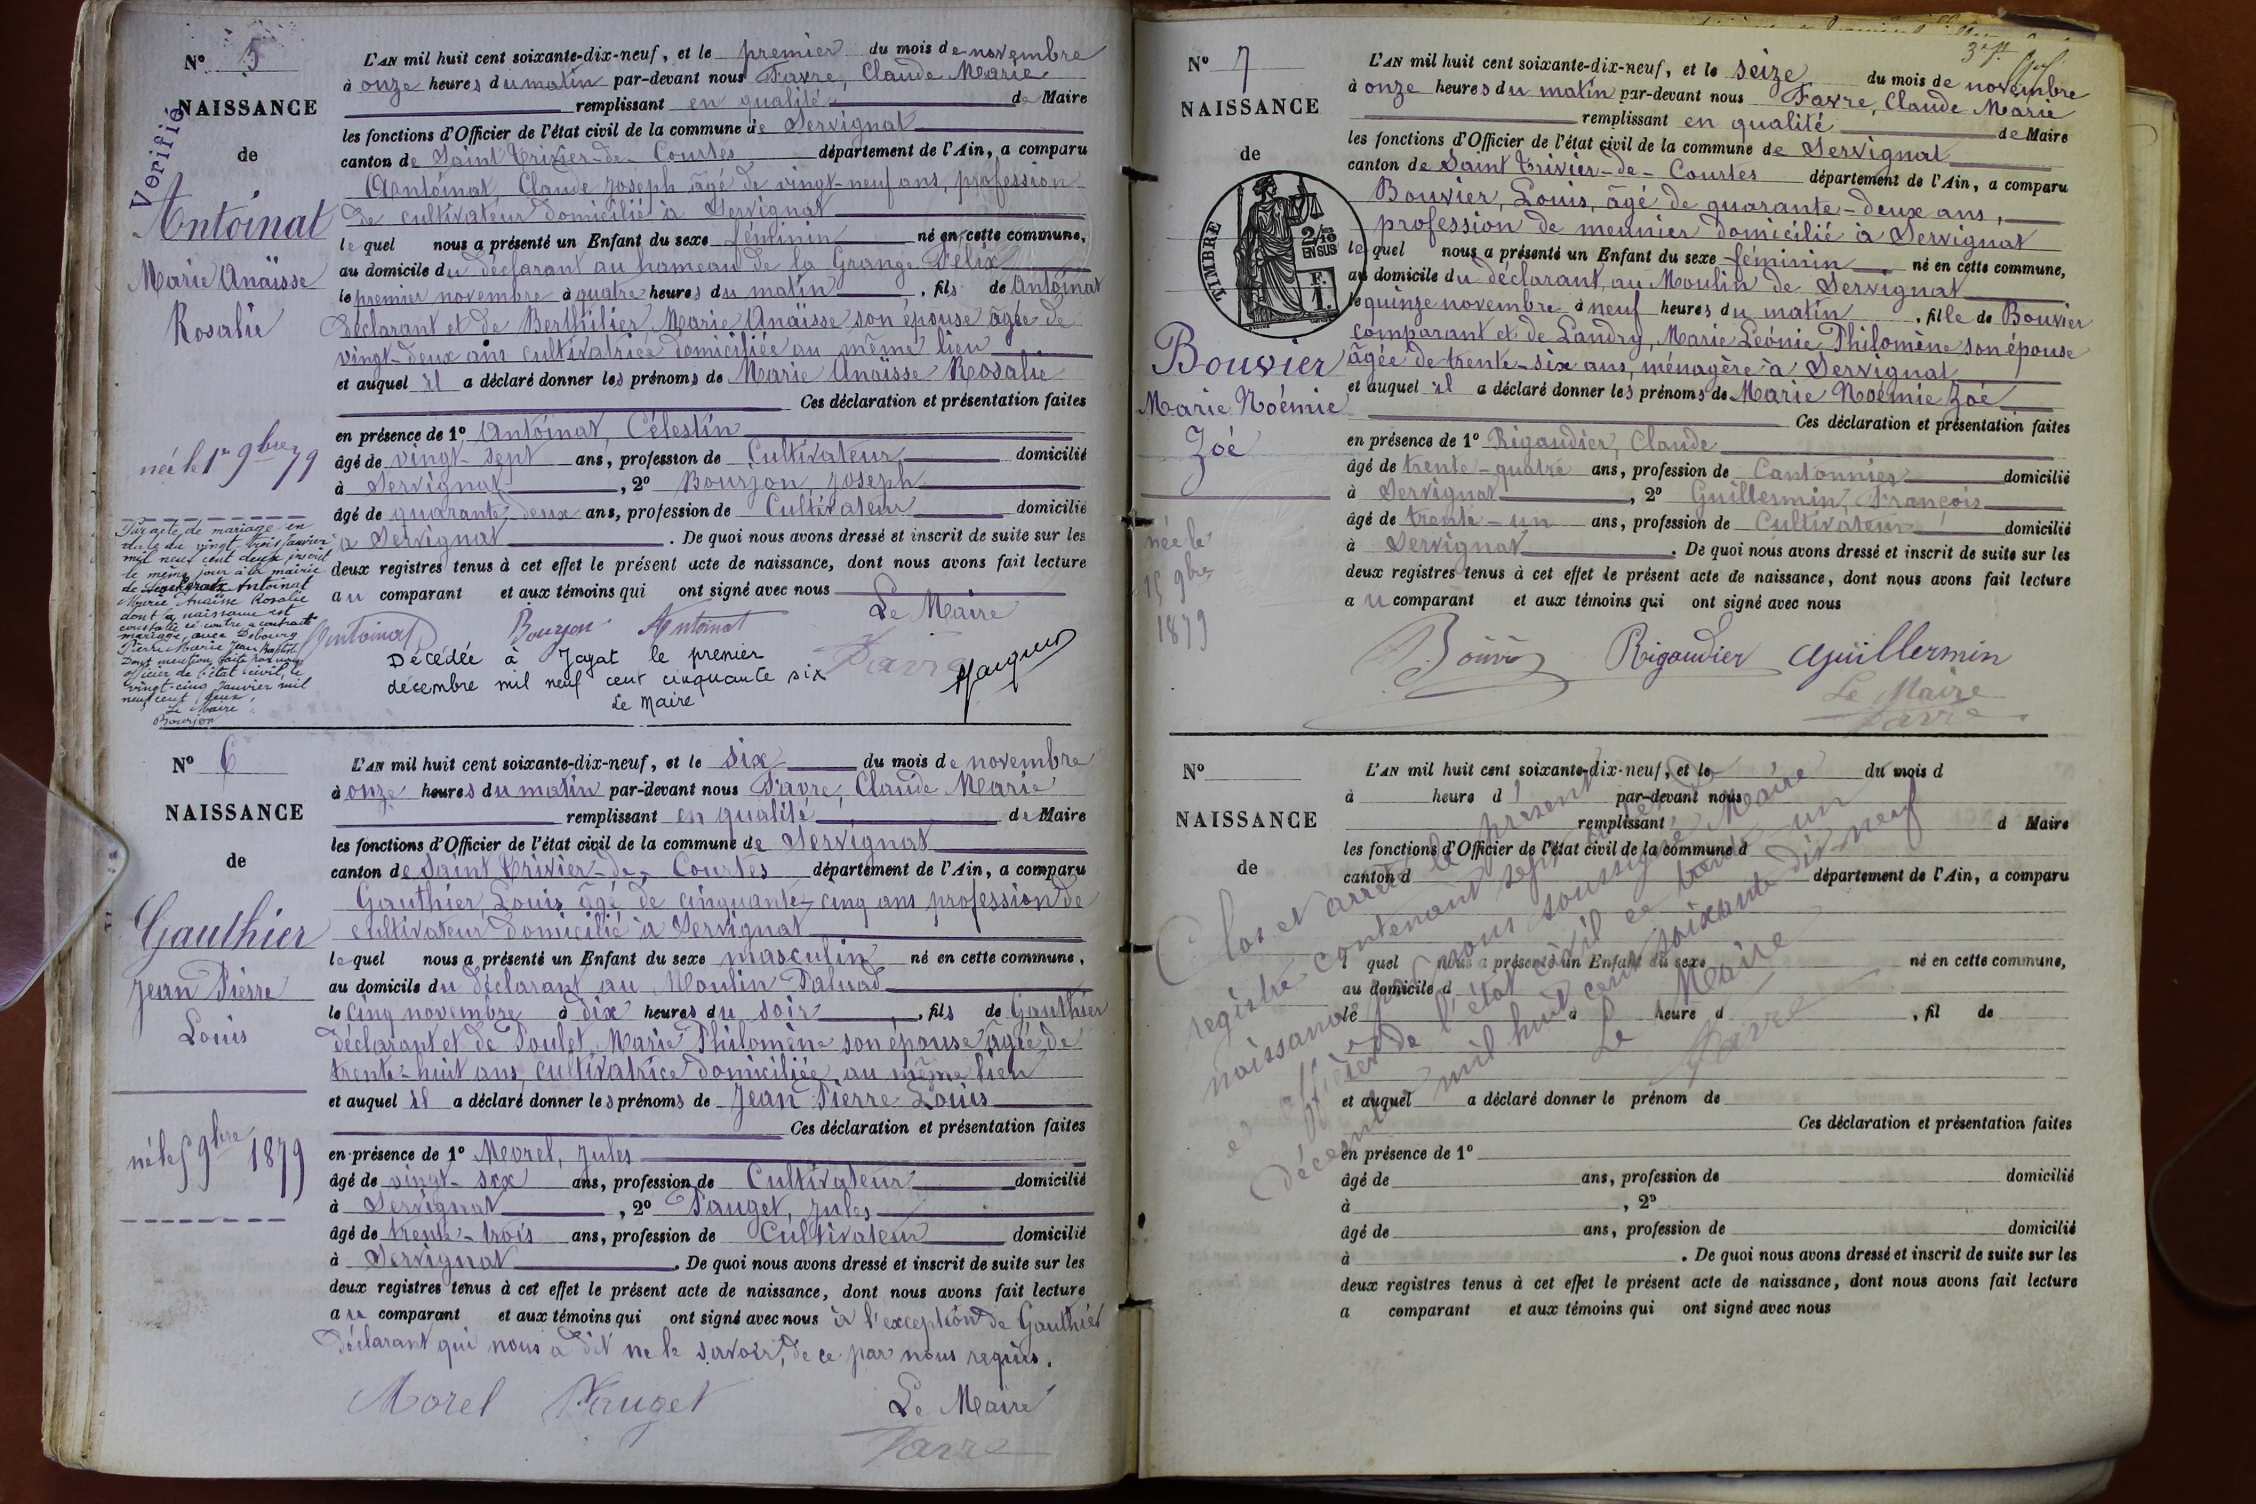 Nº 5
NAISSANCE
de
Vérifié
Antoinat
Marie Anaïsse
Rosalie
née le 1er 9bre 79
Par acte de mariage en
date du vingt trois Janvier
mil neuf cent deux inscrit
le même jour à la mairie
de Antoinat
Marie Anaïsse Rosalie
dont la naissance est
constatée ci-contre a contracté
mariage avec Debourg
Pierre Marie Jean Baptiste
Dont mention faite par nous
officier de l'état civil, le
vingt-cinq Janvier mil
neuf cent deux,
Le Maire
Bourjon
L'AN mil huit cent soixante-dix-neuf, et le premier du mois de novembre
à onze heures du matin par-devant nous Favre, Claude Marie
remplissant en qualité de Maire
les fonctions d'Officier de l'état civil de la commune de Servignat
canton de Saint Trivier-de-Courtes département de l'Ain, a comparu
Antoinat, Claude Joseph âgé de vingt-neuf ans, profession
de cultivateur domicilié à Servignat
lequel nous a présenté un Enfant du sexe féminin né en cette commune,
au domicile du déclarant au hameau de la Grange Félix
le premier novembre à quatre heures du matin, fils de Antoinat
déclarant et de Berthilier Marie Anaïsse son épouse âgée de
vingt-deux ans cultivatrice domiciliée au même lieu
et auquel il a déclaré donner les prénoms de Marie Anaïsse Rosalie
Ces déclaration et présentation faites
en présence de 1º Antoinat, Célestin
âgé de vingt-sept ans, profession de Cultivateur domicilié
à Servignat, 2º Bourjon, Joseph
âgé de quarante-deux ans, profession de Cultivateur domicilié
à Servignat. De quoi nous avons dressé et inscrit de suite sur les
deux registres tenus à cet effet le présent acte de naissance, dont nous avons fait lecture
au comparant et aux témoins qui ont signé avec nous
Le Maire
Antoinat Bourjon Antoinat
Favre
Décédée à Jayat le premier
décembre mil neuf cent cinquante six
Le Maire
Nº 6
NAISSANCE
de
Gauthier
Jean Pierre
Louis
né le 5 9bre 1879
L'AN mil huit cent soixante-dix-neuf, et le six du mois de novembre
à onze heures du matin par-devant nous Favre, Claude Marie
remplissant en qualité de Maire
les fonctions d'Officier de l'état civil de la commune de Servignat
canton de Saint Trivier-de-Courtes département de l'Ain, a comparu
Gauthier, Louis âgé de cinquante-cinq ans profession de
cultivateur domicilié à Servignat
lequel nous a présenté un Enfant du sexe masculin né en cette commune,
au domicile du déclarant au Moulin Paluad
le cinq novembre à dix heures du soir, fils de Gauthier
déclarant et de Poulet, Marie Philomène son épouse âgée de
trente-huit ans, cultivatrice domiciliée au même lieu
et auquel il a déclaré donner les prénoms de Jean Pierre Louis
Ces déclaration et présentation faites
en présence de 1º Morel, Jules
âgé de vingt-six ans, profession de Cultivateur domicilié
à Servignat, 2º Pauget, Jules
âgé de trente-trois ans, profession de Cultivateur domicilié
à Servignat. De quoi nous avons dressé et inscrit de suite sur les
deux registres tenus à cet effet le présent acte de naissance, dont nous avons fait lecture
au comparant et aux témoins qui ont signé avec nous à l'exception de Gauthier
déclarant qui nous a dit ne le savoir, de ce par nous requis.
Morel Pauget Le Maire
Favre
3e
Nº 7
NAISSANCE
de
TIMBRE
2/10
EN SUS
F.
1.
Bouvier
Marie Noémie
Zoé
née le
15 9bre
1879
L'AN mil huit cent soixante-dix-neuf, et le seize du mois de novembre
à onze heures du matin par-devant nous Favre, Claude Marie
remplissant en qualité de Maire
les fonctions d'Officier de l'état civil de la commune de Servignat
canton de Saint Trivier-de-Courtes département de l'Ain, a comparu
Bouvier, Louis, âgé de quarante-deux ans,
profession de meunier domicilié à Servignat
lequel nous a présenté un Enfant du sexe féminin né en cette commune,
au domicile du déclarant, au Moulin de Servignat
le quinze novembre à neuf heures du matin, fille de Bouvier
comparant et de Landry, Marie Léonie Philomène son épouse
âgée de trente-six ans, ménagère à Servignat
et auquel il a déclaré donner les prénoms de Marie Noémie Zoé
Ces déclaration et présentation faites
en présence de 1º Rigaudier, Claude
âgé de trente-quatre ans, profession de Cantonnier domicilié
à Servignat, 2º Guillermin, François
âgé de trente-un ans, profession de Cultivateur domicilié
à Servignat. De quoi nous avons dressé et inscrit de suite sur les
deux registres tenus à cet effet le présent acte de naissance, dont nous avons fait lecture
au comparant et aux témoins qui ont signé avec nous
Bouvier Rigaudier Guillermin
Le Maire
Favre
Nº
NAISSANCE
de
L'AN mil huit cent soixante-dix-neuf, et le du mois d
à heure d par-devant nous
remplissant d Maire
les fonctions d'Officier de l'état civil de la commune d
canton d département de l'Ain, a comparu
l quel nous a présenté un Enfant du sexe né en cette commune,
au domicile d
le à heure d , fil de
et auquel a déclaré donner le prénom de
Ces déclaration et présentation faites
en présence de 1º
âgé de ans, profession de domicilié
à , 2º
âgé de ans, profession de domicilié
à . De quoi nous avons dressé et inscrit de suite sur les
deux registres tenus à cet effet le présent acte de naissance, dont nous avons fait lecture
a comparant et aux témoins qui ont signé avec nous
Clos et arrêté le présent
registre contenant sept actes de
naissance par nous soussigné Maire
et officier de l'état civil ce trente un
décembre mil huit cent soixante dix neuf
Le Maire
Favre